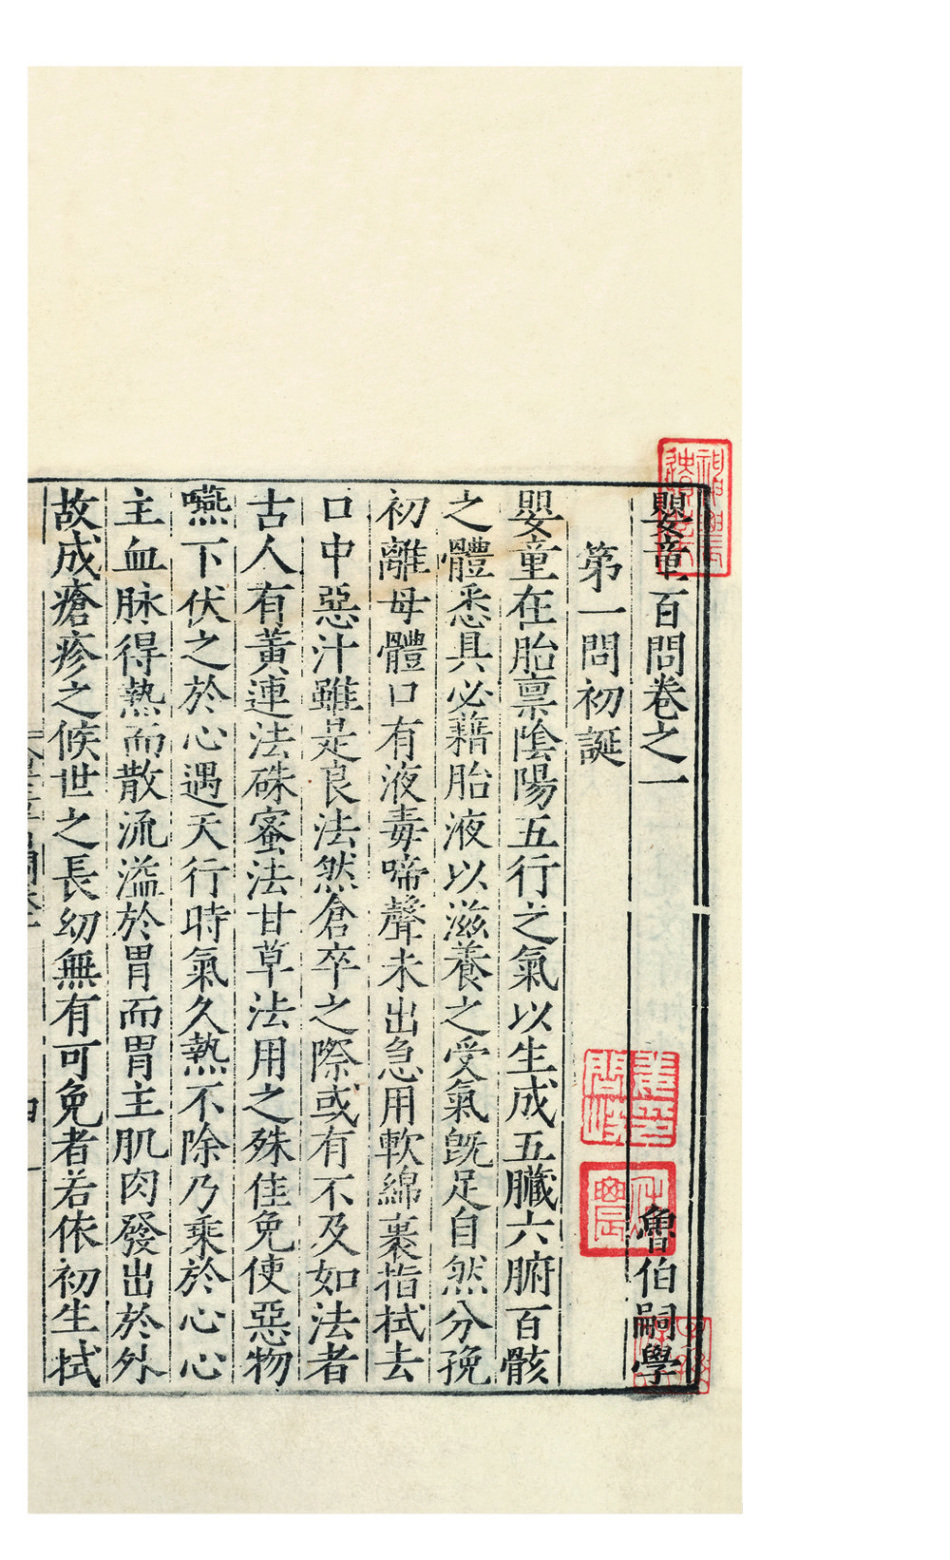 嬰童百問卷之一 魯伯嗣學
第一問初誕
嬰童在胎禀陰陽五行之氣以生成五臟六腑百骸
之體悉具必藉胎液以滋養之受氣旣足自然分㝃
初離母體口有液毒啼聲未出急用軟綿裹指拭去
口中惡汁雖是良法然倉卒之際或有不及如法者
古人有黃連法硃蜜法甘草法用之殊佳免使惡物
嚥下伏之於心遇天行時氣久熱不除乃乘於心心
主血脉得熱而散流溢於胃而胃主肌肉發出於外
故成瘡疹之候世之長幼無有可免者若依初生拭